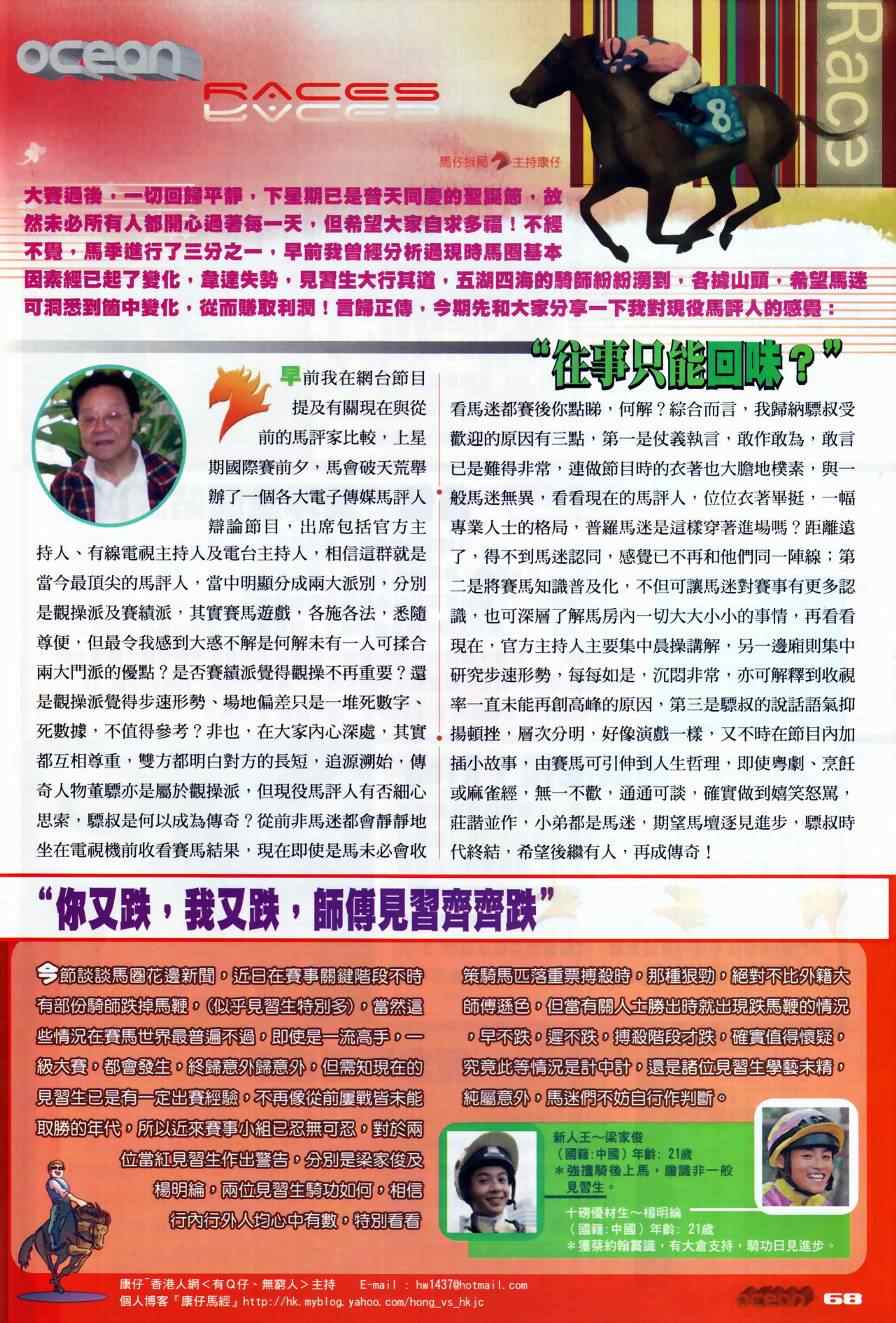 ocean
RACES
Race
8
馬仔狠局 主持康仔
大賽過後，一切回歸平靜，下星期已是普天同慶的聖誕節，故
然未必所有人都開心過著每一天，但希望大家自求多福！不經
不覺，馬季進行了三分之一，早前我曾經分析過現時馬圈基本
因素經已起了變化，韋達失勢，見習生大行其道，五湖四海的騎師紛紛湧到，各據山頭，希望馬迷
可洞悉到箇中變化，從而賺取利潤！言歸正傳，今期先和大家分享一下我對現役馬評人的感覺：
“往事只能回味？”
早前我在網台節目
提及有關現在與從
前的馬評家比較，上星
期國際賽前夕，馬會破天荒舉
辦了一個各大電子傳媒馬評人
辯論節目，出席包括官方主
持人、有線電視主持人及電台主持人，相信這群就是
當今最頂尖的馬評人，當中明顯分成兩大派別，分別
是觀操派及賽績派，其實賽馬遊戲，各施各法，悉隨
尊便，但最令我感到大惑不解是何解未有一人可揉合
兩大門派的優點？是否賽績派覺得觀操不再重要？還
是觀操派覺得步速形勢、場地偏差只是一堆死數字、
死數據，不值得參考？非也，在大家內心深處，其實
都互相尊重，雙方都明白對方的長短，追源溯始，傳
奇人物董驃亦是屬於觀操派，但現役馬評人有否細心
思索，驃叔是何以成為傳奇？從前非馬迷都會靜靜地
坐在電視機前收看賽馬結果，現在即使是馬未必會收
看馬迷都賽後你點睇，何解？綜合而言，我歸納驃叔受
歡迎的原因有三點，第一是仗義執言，敢作敢為，敢言
已是難得非常，連做節目時的衣著也大膽地樸素，與一
般馬迷無異，看看現在的馬評人，位位衣著畢挺，一幅
專業人士的格局，普羅馬迷是這樣穿著進場嗎？距離遠
了，得不到馬迷認同，感覺已不再和他們同一陣線；第
二是將賽馬知識普及化，不但可讓馬迷對賽事有更多認
識，也可深層了解馬房內一切大大小小的事情，再看看
現在，官方主持人主要集中晨操講解，另一邊廂則集中
研究步速形勢，每每如是，沉悶非常，亦可解釋到收視
率一直未能再創高峰的原因，第三是驃叔的說話語氣抑
揚頓挫，層次分明，好像演戲一樣，又不時在節目內加
插小故事，由賽馬可引伸到人生哲理，即使粵劇、烹飪
或麻雀經，無一不歡，通通可談，確實做到嬉笑怒罵，
莊諧並作，小弟都是馬迷，期望馬壇逐見進步，驃叔時
代終結，希望後繼有人，再成傳奇！
“你又跌，我又跌，師傅見習齊齊跌”
今節談談馬圈花邊新聞，近日在賽事關鍵階段不時
有部份騎師跌掉馬鞭，（似乎見習生特別多），當然這
些情況在賽馬世界最普遍不過，即使是一流高手，一
級大賽，都會發生，終歸意外歸意外，但需知現在的
見習生已是有一定出賽經驗，不再像從前屢戰皆未能
取勝的年代，所以近來賽事小組已忍無可忍，對於兩
位當紅見習生作出警告，分別是梁家俊及
楊明綸，兩位見習生騎功如何，相信
行內行外人均心中有數，特別看看
策騎馬匹落重票搏殺時，那種狠勁，絕對不比外籍大
師傅遜色，但當有關人士勝出時就出現跌馬鞭的情況
，早不跌，遲不跌，搏殺階段才跌，確實值得懷疑，
究竟此等情況是計中計，還是諸位見習生學藝未精，
純屬意外，馬迷們不妨自行作判斷。
新人王～梁家俊
（國籍:中國）年齡：21歲
＊強擅騎後上馬，膽識非一般
見習生。
十磅優材生～楊明綸
（國籍:中國）年齡：21歲
＊獲蔡約翰賞識，有大倉支持，騎功日見進步。
康仔~香港人網＜有Ｑ仔、無窮人＞主持 E-mail : hw1437@hotmail.com
個人博客『康仔馬經』http://hk.myblog.yahoo.com/hong_vs_hkjc
ocean 68